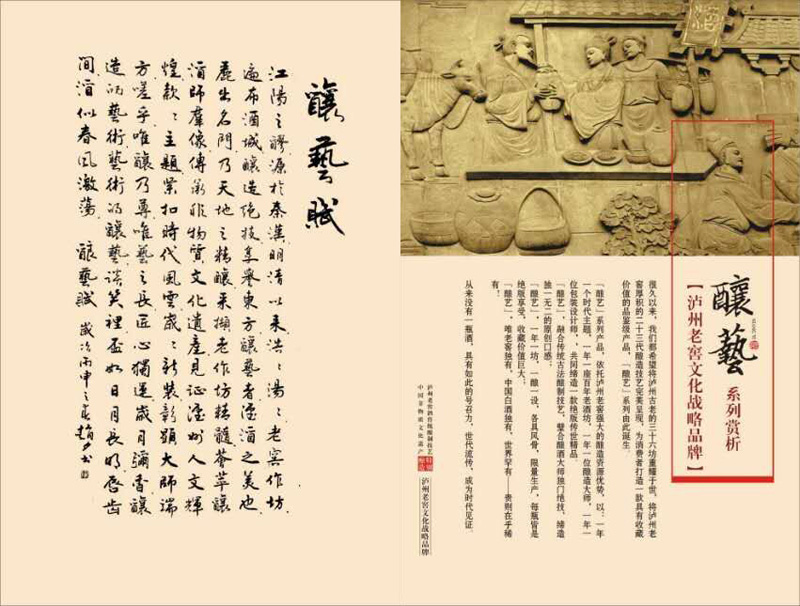 釀藝賦
江陽之醪源於秦漢明清以來浩〻湯〻老窖作坊
遍布酒城釀造絕技享譽東方釀藝者瀘酒之美也
麗出名門乃天地之精釀采擷老作坊精髓薈萃釀
酒師群像傳承非物質文化遺產見證瀘州人文輝
煌款〻主題緊扣時代風雲歲〻新裝彰顯大師端
方嗟乎唯釀乃尊唯藝之長匠心獨運歲月彌香釀
造的藝術藝術的釀藝談笑裡盃如日月長明唇齒
間酒似春風激蕩 釀藝賦 歲次丙申之春趙
釀藝
系列赏析
【泸州老窖文化战略品牌】
很久以来，我们都希望将泸州古老的三十六坊重耀于世，将泸州老
窖厚积的二十三代酿造技艺完美呈现，为消费者打造一款具有收藏
价值的品鉴级产品，「酿艺」系列由此诞生。
「酿艺」系列产品，依托泸州老窖强大的酿造资源优势，以：一年
一个时代主题，一年一座百年老酒坊，一年一位酿造大师，一年一
位包装设计师，共同缔造一款绝版传世精品。
「酿艺」，融合传统古法酿制技艺，暨合酿酒大师独门绝技，缔造
独一无二的原创口感；
「酿艺」，一年一坊，一酿一设，各具风骨，限量生产，每瓶皆是
绝版享受，收藏价值巨大。
「酿艺」，唯老窖独有，中国白酒独有，世界罕有——贵则在乎稀
有！
从来没有一瓶酒，具有如此的号召力，世代流传，成为时代见证。
泸州老窖酒传统酿制技艺
中国非物质文化遗产
特别
酿造
泸州老窖文化战略品牌